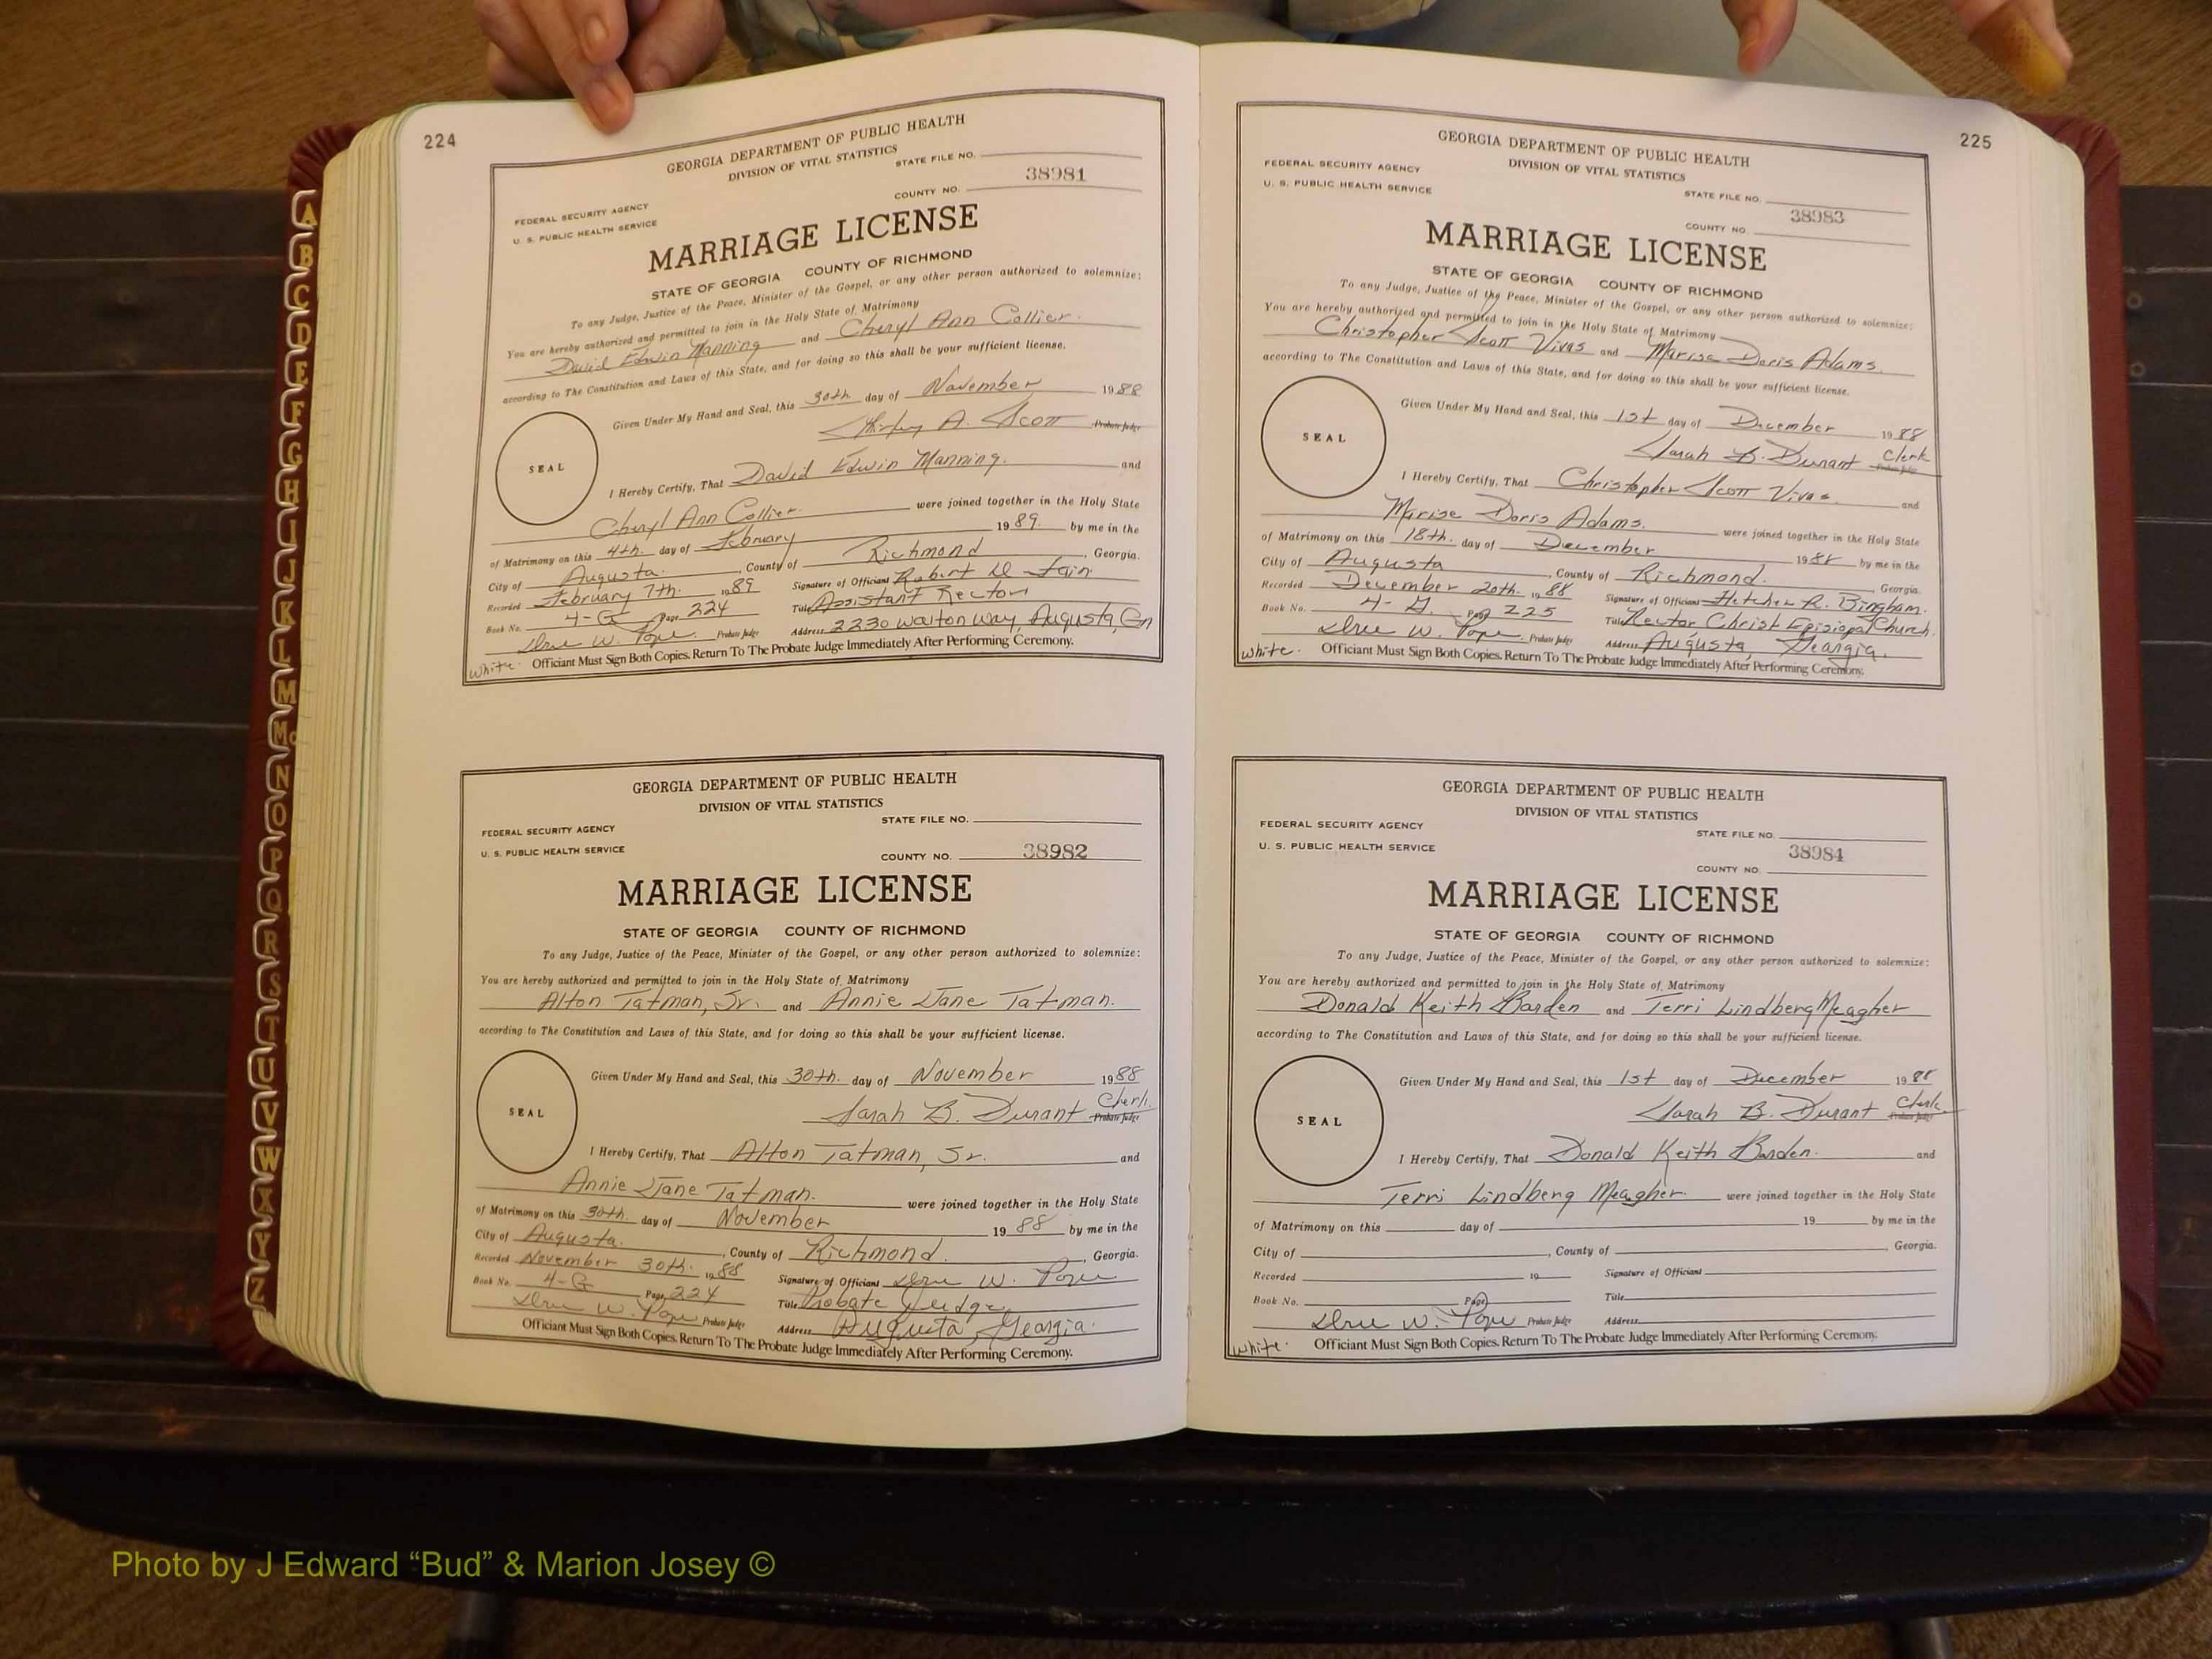 224
GEORGIA DEPARTMENT OF PUBLIC HEALTH
DIVISION OF VITAL STATISTICS
STATE FILE NO.
38981
COUNTY NO.
FEDERAL SECURITY AGENCY
U. S. PUBLIC HEALTH SERVICE
MARRIAGE LICENSE
STATE OF GEORGIA COUNTY OF RICHMOND
To any Judge, Justice of the Peace, Minister of the Gospel, or any other person authorized to solemnize:
You are hereby authorized and permitted to join in the Holy State of Matrimony
David Edwin Manning and Cheryl Ann Collier.
according to The Constitution and Laws of this State, and for doing so this shall be your sufficient license.
Given Under My Hand and Seal, this 30th. day of November 1988
Shirley A. Scott Probate Judge
SEAL
I Hereby Certify, That David Edwin Manning. and
Cheryl Ann Collier. were joined together in the Holy State
of Matrimony on this 4th. day of February 1989. by me in the
City of Augusta. , County of Richmond , Georgia.
Recorded February 7th. 1989 Signature of Officiant Robert D Fain
Book No. 4-G Page 224 Title Assistant Rector
W. Pope Probate Judge Address 2230 Walton Way, Augusta, Ga
White. Officiant Must Sign Both Copies. Return To The Probate Judge Immediately After Performing Ceremony.
GEORGIA DEPARTMENT OF PUBLIC HEALTH
DIVISION OF VITAL STATISTICS
STATE FILE NO.
FEDERAL SECURITY AGENCY
U. S. PUBLIC HEALTH SERVICE
COUNTY NO. 38982
MARRIAGE LICENSE
STATE OF GEORGIA COUNTY OF RICHMOND
To any Judge, Justice of the Peace, Minister of the Gospel, or any other person authorized to solemnize:
You are hereby authorized and permitted to join in the Holy State of Matrimony
Alton Tatman, Jr. and Annie Jane Tatman.
according to The Constitution and Laws of this State, and for doing so this shall be your sufficient license.
Given Under My Hand and Seal, this 30th. day of November 1988
Sarah B. Durant Clerk. Probate Judge
SEAL
I Hereby Certify, That Alton Tatman, Sr. and
Annie Jane Tatman. were joined together in the Holy State
of Matrimony on this 30th. day of November 1988 by me in the
City of Augusta. , County of Richmond. , Georgia.
Recorded November 30th. 1988 Signature of Officiant W. Pope
Book No. 4-G Page 224 Title Probate Judge
W. Pope Probate Judge Address Augusta, Georgia.
Officiant Must Sign Both Copies. Return To The Probate Judge Immediately After Performing Ceremony.
225
GEORGIA DEPARTMENT OF PUBLIC HEALTH
DIVISION OF VITAL STATISTICS
FEDERAL SECURITY AGENCY
U. S. PUBLIC HEALTH SERVICE
STATE FILE NO.
38983
COUNTY NO.
MARRIAGE LICENSE
STATE OF GEORGIA COUNTY OF RICHMOND
To any Judge, Justice of the Peace, Minister of the Gospel, or any other person authorized to solemnize:
You are hereby authorized and permitted to join in the Holy State of Matrimony
Christopher Scott Vivas and Marise Doris Adams.
according to The Constitution and Laws of this State, and for doing so this shall be your sufficient license.
Given Under My Hand and Seal, this 1st day of December 1988
Sarah B. Durant Clerk Probate Judge
SEAL
I Hereby Certify, That Christopher Scott Vivas. and
Marise Doris Adams. were joined together in the Holy State
of Matrimony on this 18th. day of December 1988 by me in the
City of Augusta , County of Richmond. Georgia.
Recorded December 20th. 1988 Signature of Officiant Fletcher R. Bingham.
Book No. 4-G. Page 225 Title Rector Christ Episiopal Church.
W. Pope. Probate Judge Address Augusta, Georgia.
White. Officiant Must Sign Both Copies. Return To The Probate Judge Immediately After Performing Ceremony.
GEORGIA DEPARTMENT OF PUBLIC HEALTH
DIVISION OF VITAL STATISTICS
FEDERAL SECURITY AGENCY
STATE FILE NO.
U. S. PUBLIC HEALTH SERVICE
38984
COUNTY NO.
MARRIAGE LICENSE
STATE OF GEORGIA COUNTY OF RICHMOND
To any Judge, Justice of the Peace, Minister of the Gospel, or any other person authorized to solemnize:
You are hereby authorized and permitted to join in the Holy State of Matrimony
Donald Keith Barden and Terri Lindberg Meagher
according to The Constitution and Laws of this State, and for doing so this shall be your sufficient license.
Given Under My Hand and Seal, this 1st day of December 1988
Sarah B. Durant Clerk Probate Judge
SEAL
I Hereby Certify, That Donald Keith Barden. and
Terri Lindberg Meagher. were joined together in the Holy State
of Matrimony on this day of 19 by me in the
City of , County of , Georgia.
Recorded 19 Signature of Officiant
Book No. Page Title
W. Pope Probate Judge Address
White. Officiant Must Sign Both Copies. Return To The Probate Judge Immediately After Performing Ceremony.
A
B
C
D
E
F
G
H
I
J
K
L
M
Mc
N
O
P
Q
R
S
T
U
V
W
X
Y
Z
Photo by J Edward “Bud” & Marion Josey ©